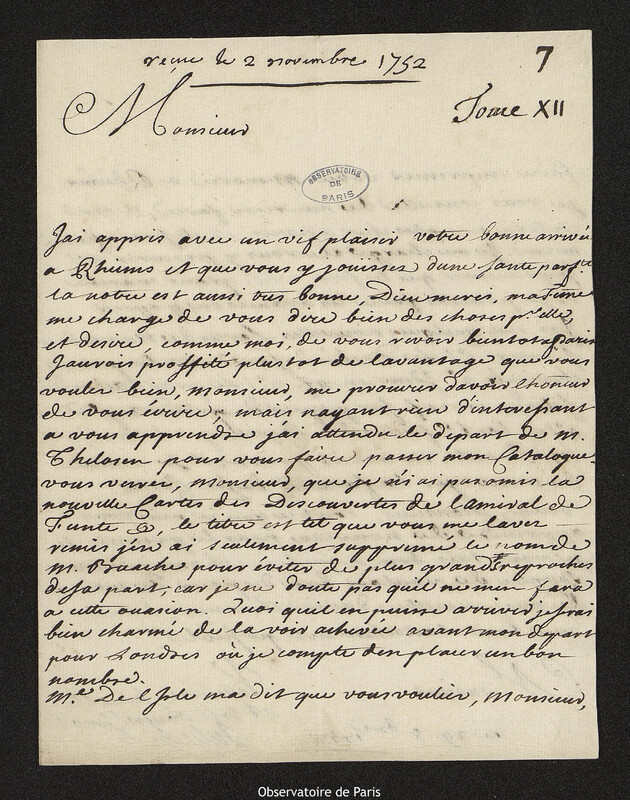 reçue le 2 novembre 1752
7
Tome XII
Monsieur
OBSERVATOIRE
DE
PARIS
Jai appris avec un vif plaisir votre bonne arrivée
a Rhiems et que vous y jouissez dune sante parfte
la notre est aussi tres bonne, Dieu mercis, ma Fme
me charge de vous dire bien des choses pr elle,
et desire, comme moi, de vous revoir bientot a Paris
Jaurois proffité plustot de lavantage que vous
voulez bien, monsieur, me procurer davoir lhoneur
de vous écrire, mais nayant rien d'interessant
a vous apprendre j'ai attendu le depart de m.
Thelosen pour vous faire passer mon Catalogue
vous verrez, monsieur, que je n'ai pas omis la
nouvelle Cartes des Descouvertes de l'amiral de
Funte &, le titre est tel que vous me lavez
remis jen ai seulement supprimé le nom de
M. Buache pour éviter de plus grands reproches
de sa part, car je ne doute pas quil ne men fara
a cette ocasion. Quoi quil en puisse arriver je serai
bien charmé de la voir achevée avant mon depart
pour Londres où je compte den placer un bon
nombre.
Me. De l'Isle ma dit que vous vouliez, Monsieur,
Observatoire de Paris